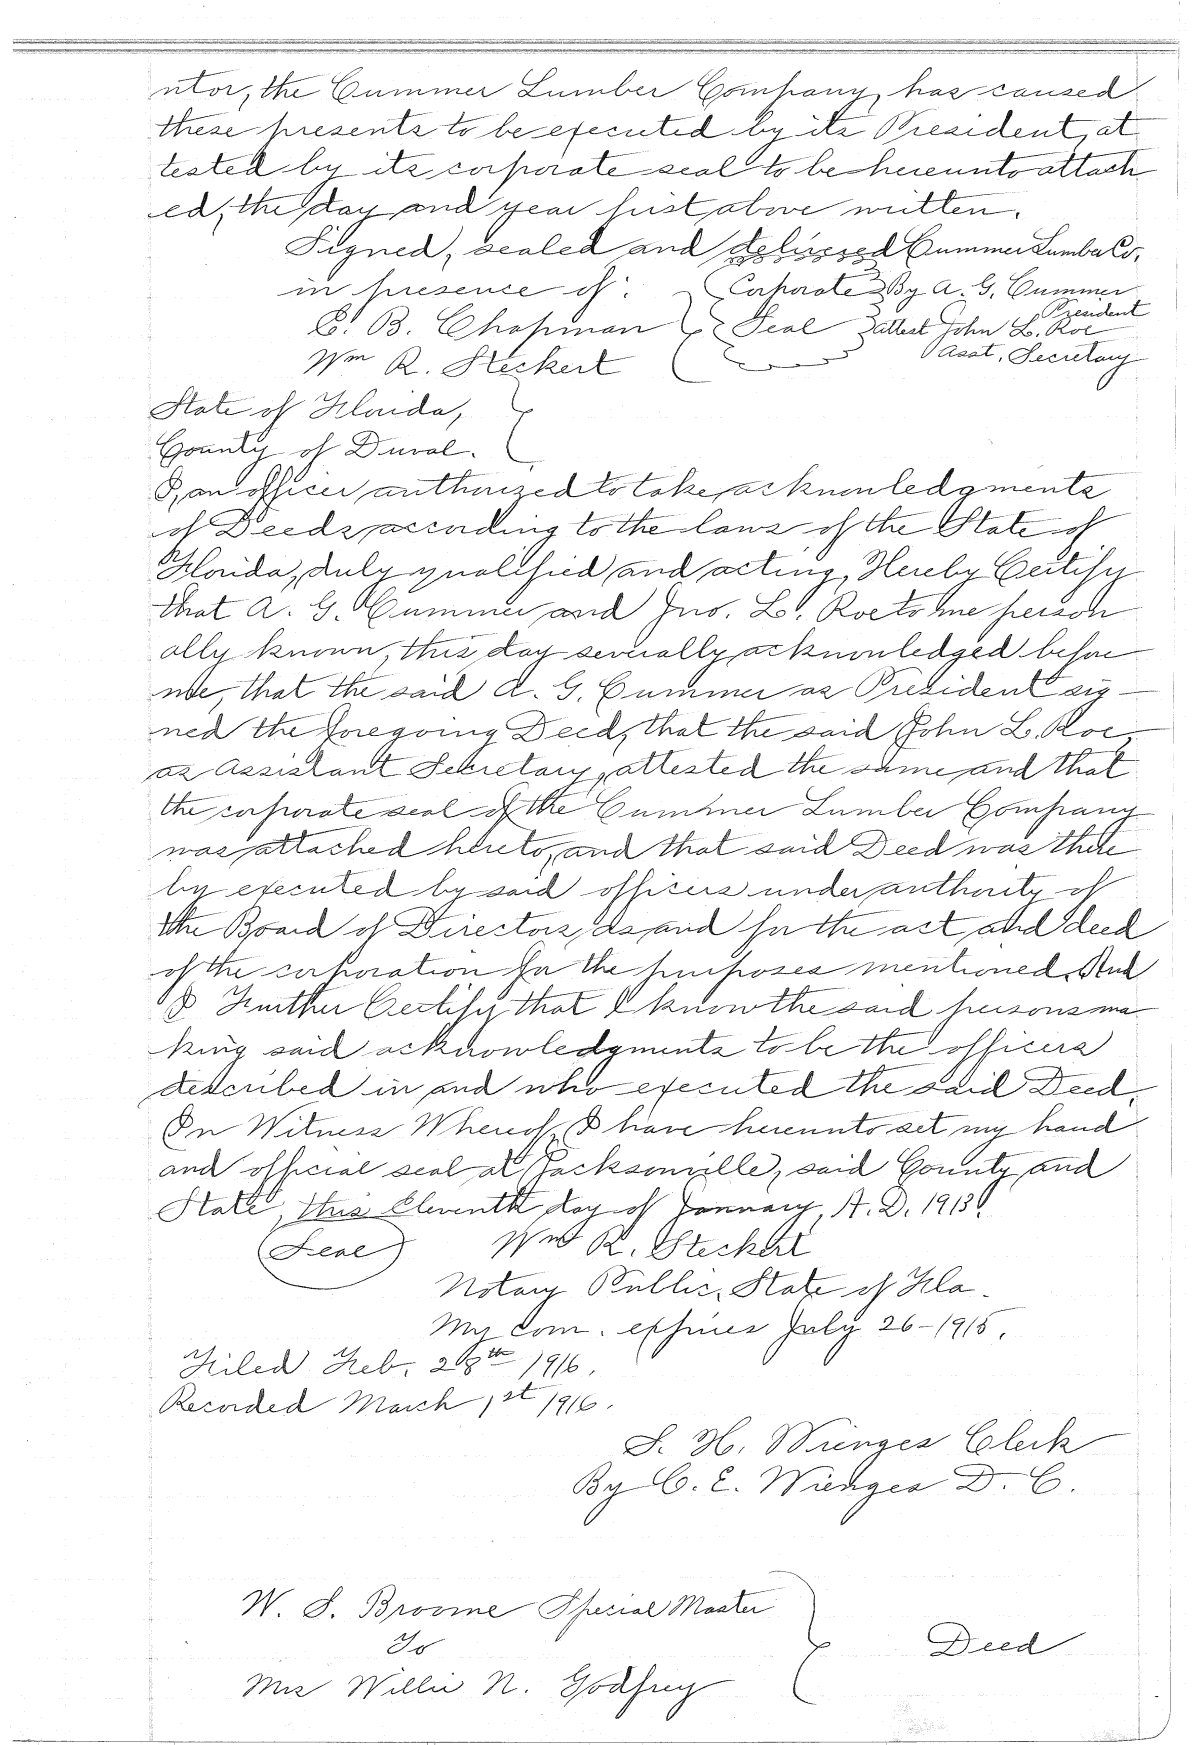 ntor, the Cummer Lumber Company, has caused
these presents to be executed by its President, at
tested by its corporate seal to be hereunto attach
ed, the day and year first above written.
Signed, sealed and delivered Cummer Lumber Co,
in presence of: Corporate By A. G. Cummer
President
C. B. Chapman Seal attest John L. Roe
Wm R. Steckert Asst. Secretary
State of Florida,
County of Duval.
I, an officer authorized to take acknowledgments
of Deeds according to the laws of the State of
Florida, duly qualified and acting, Hereby Certify
that A. G. Cummer and Jno. L. Roe to me person
ally known, this day severally acknowledged before
me, that the said A. G. Cummer as President sig-
ned the foregoing Deed, that the said John L. Roe,
as Assistant Secretary, attested the same and that
the corporate seal of the Cummer Lumber Company
was attached hereto, and that said Deed was there
by executed by said officers under authority of
the Board of Directors, as and for the act and deed
of the corporation for the purposes mentioned. And
I Further Certify that I know the said persons ma
king said acknowledgments to be the officers
described in and who executed the said Deed.
In Witness Whereof, I have hereunto set my hand
and official seal at Jacksonville, said County and
State, this Eleventh day of January, A. D. 1913.
Seal Wm R. Steckert
Notary Public, State of Fla.
My com. expires July 26-1915.
Filed Feb. 28th 1916.
Recorded March 1st 1916.
S. H. Wienges Clerk
By C. E. Wienges D. C.
W. S. Broome Special Master
To Deed
Mrs Willie N. Godfrey